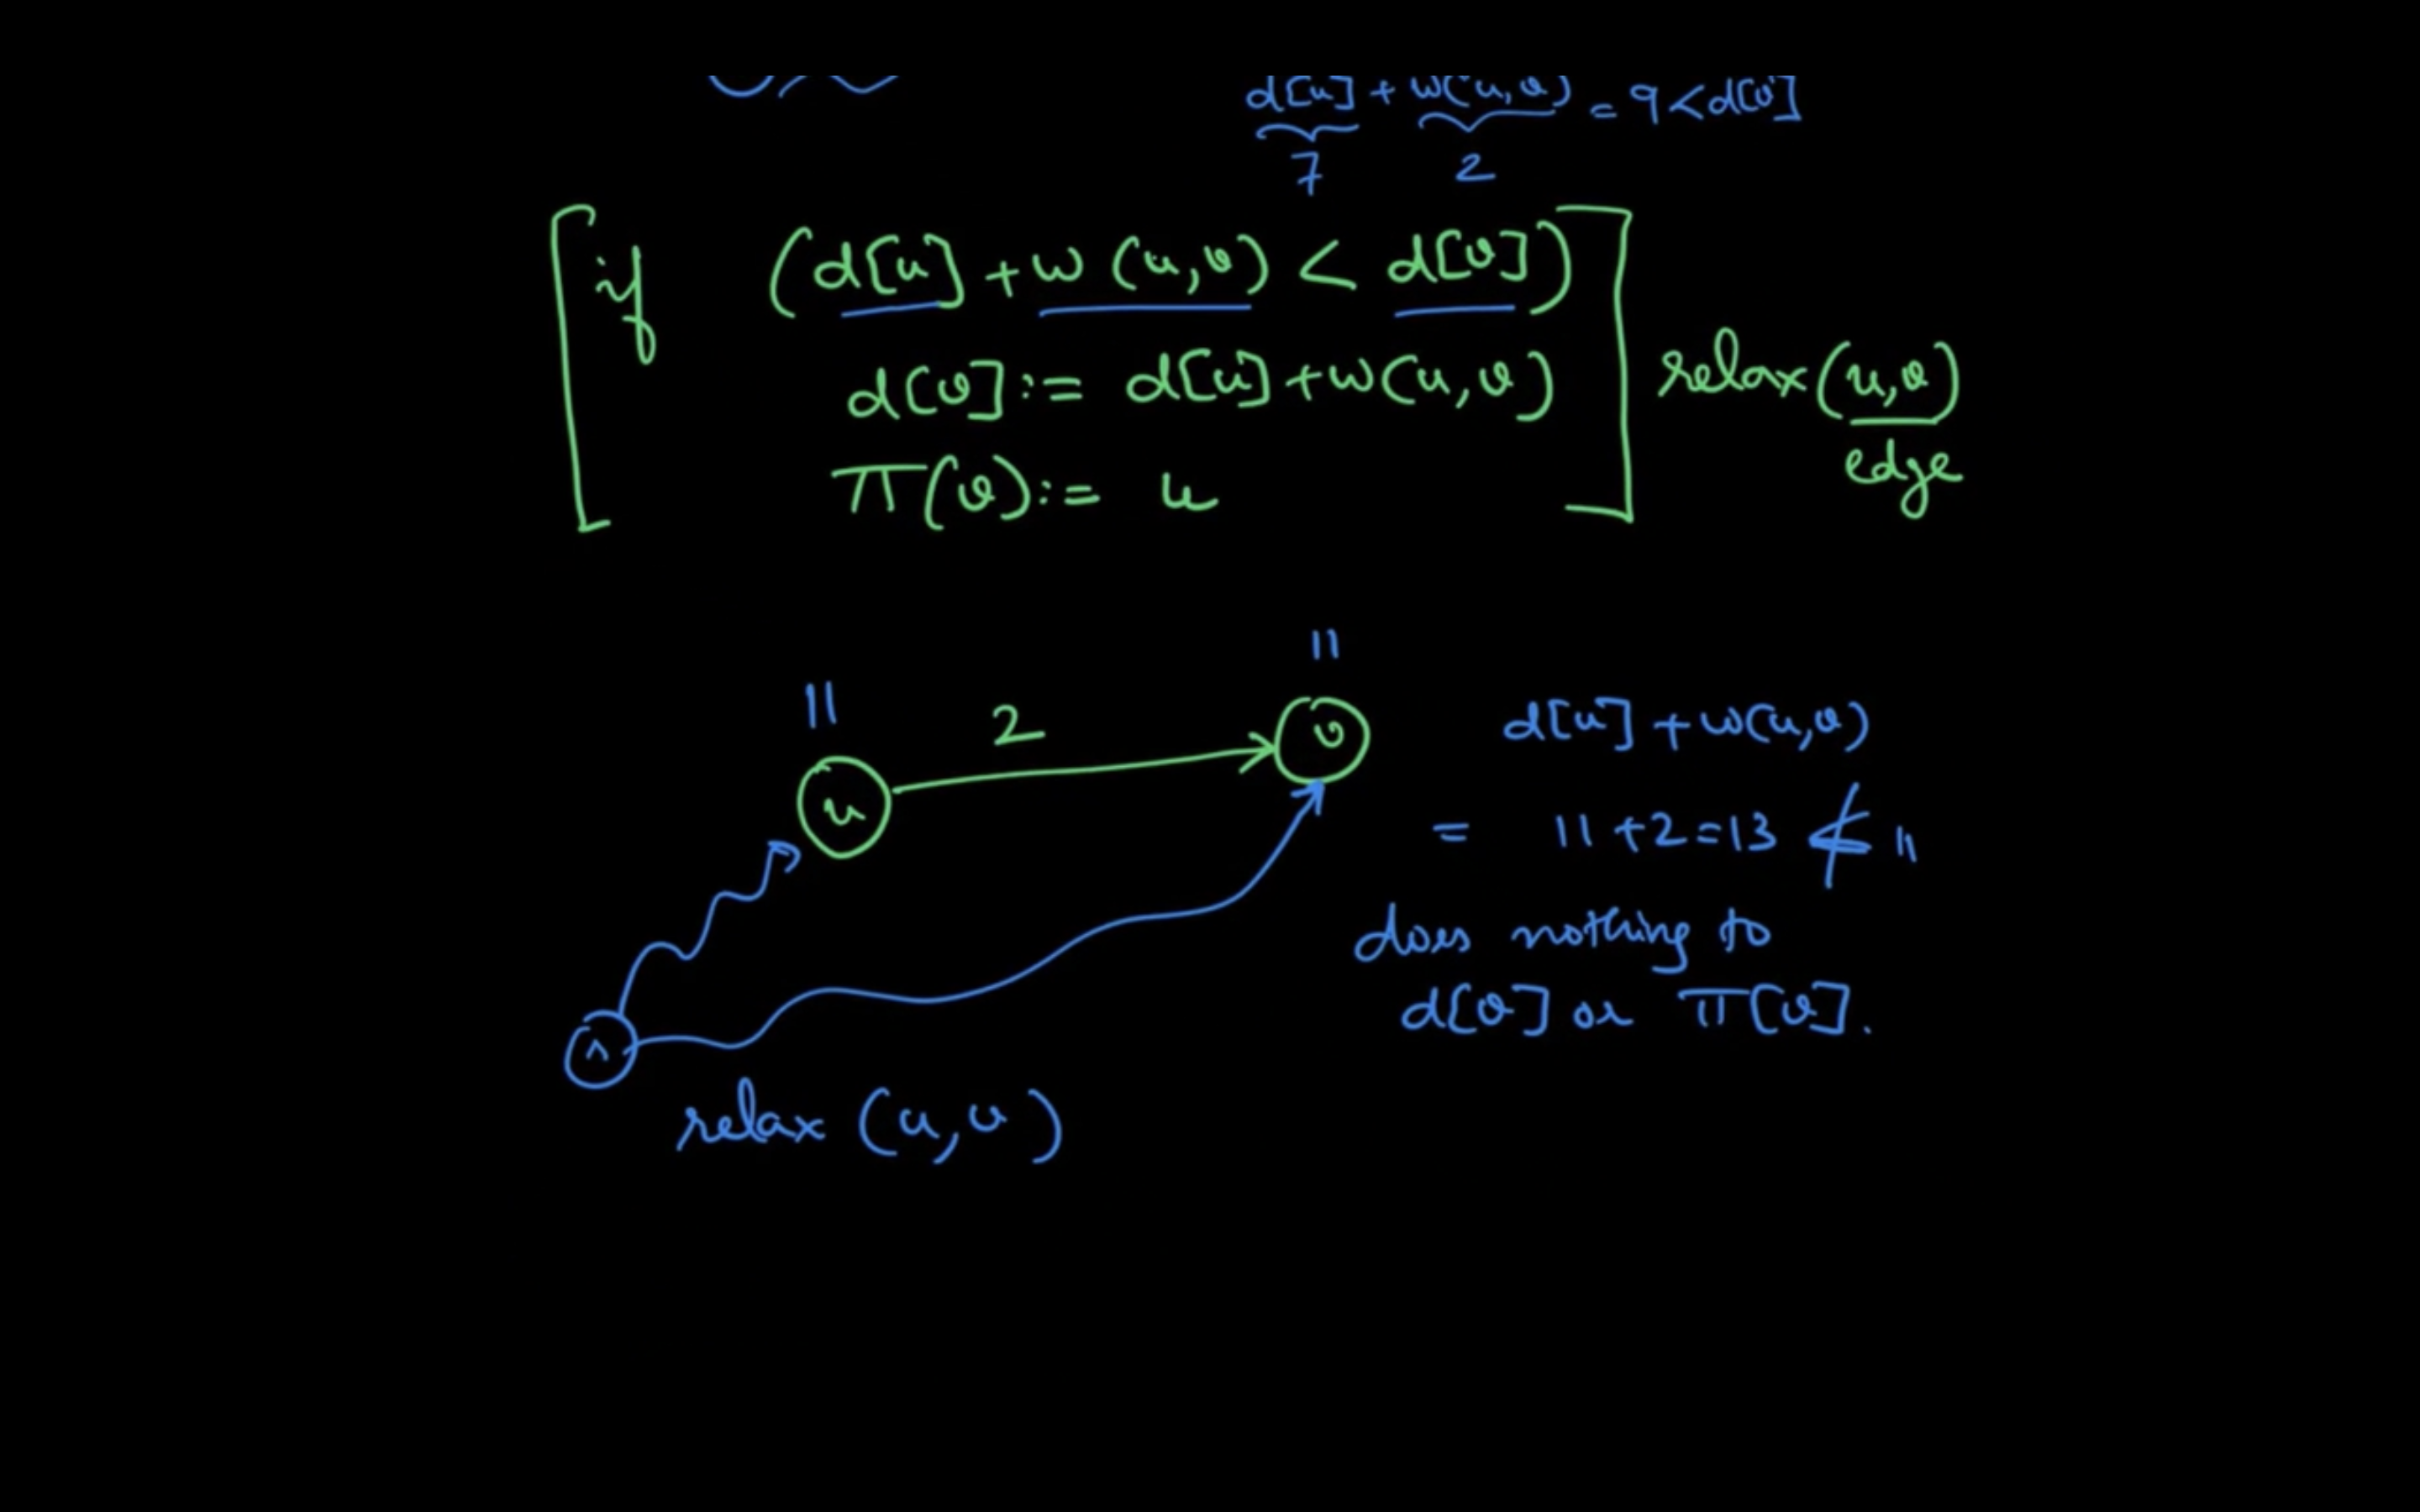 d[u] + w(u,v) = 9 < d[v]
7 2
if (d[u] + w (u,v) < d[v])
d[v] := d[u] + w(u,v)
relax(u,v)
edge
π(v) := u
11
11
2
u
v
d[u] + w(u,v)
= 11 + 2 = 13 ≮ 11
does nothing to
d[v] or π[v].
s
relax (u,v)